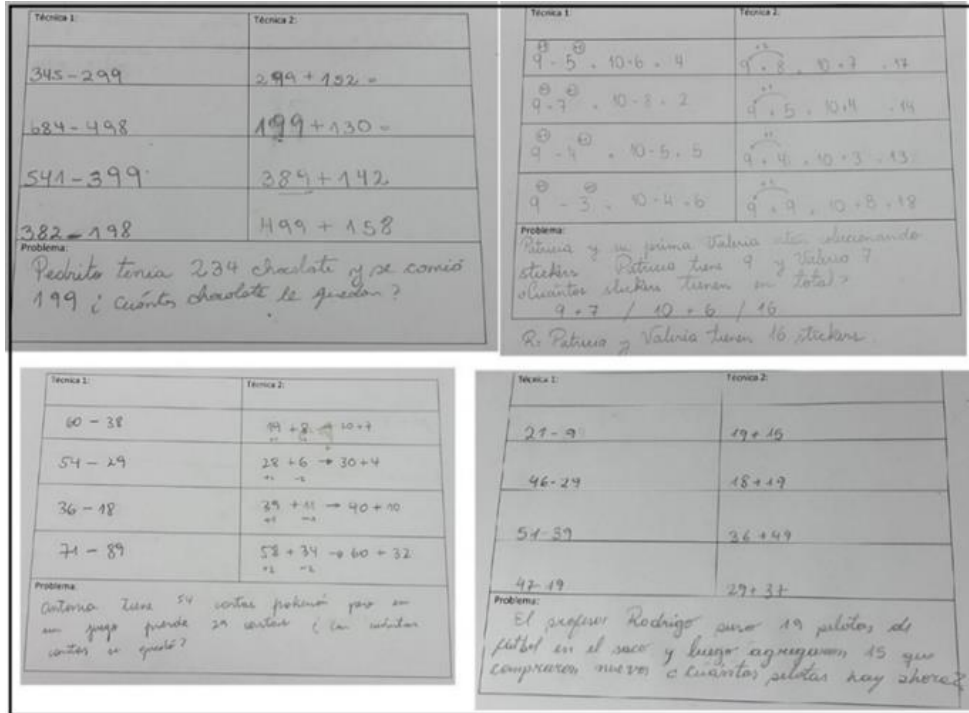 Técnica 1: Técnica 2:
345-299 299+152=
684-498 199+130=
541-399 389+142
382-198 499+158
Problema:
Pedrito tenia 234 chocolate y se comió
199 ¿Cuánto chocolate le quedan?
Técnica 1: Técnica 2:
+1 +1 +1
9-5 = 10-6 = 4 9+8 = 10+7 = 17
+1 +1
9-7 = 10-8 = 2 9+5 = 10+4 = 14
+1 +1 +1
9-4 = 10-5 = 5 9+4 = 10+3 = 13
+1 +1 +1
9-3 = 10-4 = 6 9+9 = 10+8 = 18
Problema:
Patricia y su prima Valeria están coleccionando
stickers. Patricia tiene 9 y Valeria 7.
¿Cuántos stickers tienen en total?
9+7 / 10+6 / 16
R: Patricia y Valeria tienen 16 stickers.
Técnica 1: Técnica 2:
60 - 38 19 + 8 → 10+7
54 - 29 28 + 6 → 30+4
+2 -2
36 - 18 39 + 11 → 40+10
+1 -1
71 - 89 58 + 34 → 60 + 32
+2 -2
Problema:
Antonia tiene 54 cartas pokemón pero en
un juego pierde 29 cartas ¿Con cuántas
cartas se quedó?
Técnica 1: Técnica 2:
21-9 19+15
46-29 18+19
51-39 36+49
47-19 29+37
Problema:
El profesor Rodrigo puso 19 pelotas de
fútbol en el saco y luego agregaron 15 que
compraron nuevos ¿Cuántas pelotas hay ahora?